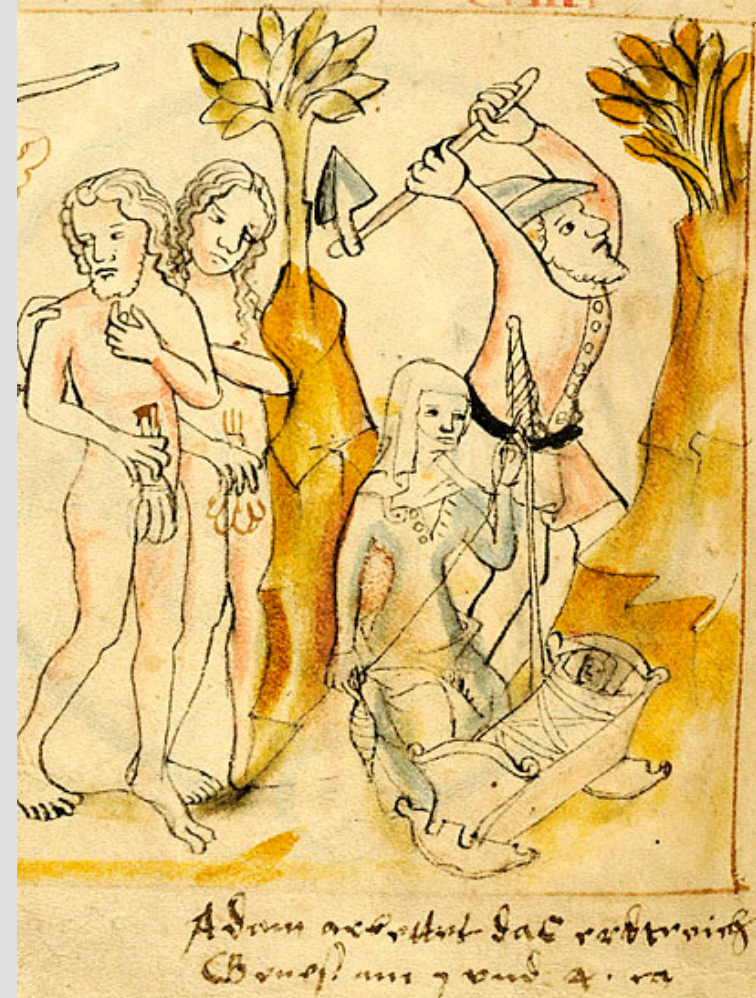 Adam arbettet das erdtreich
Genes: am 3 vnd 4. ca